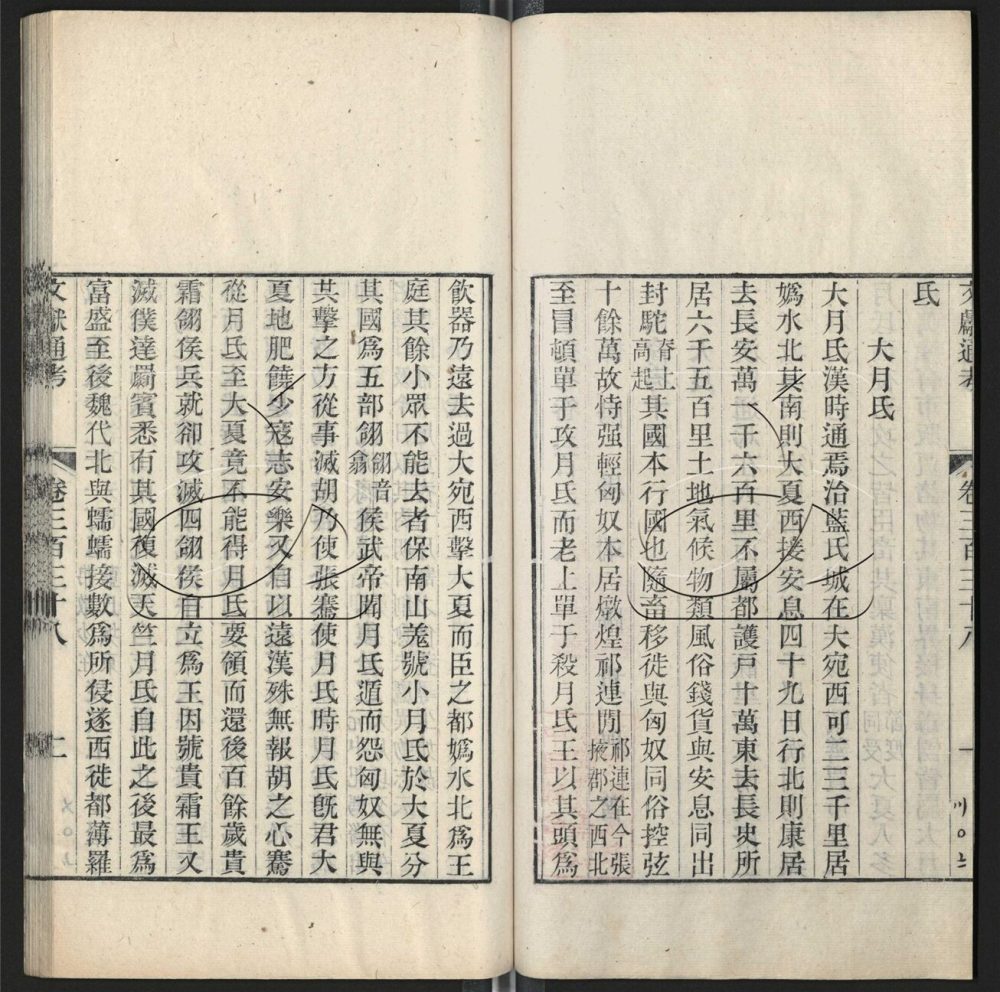 文獻通考 卷三百三十八
氏
大月氏
大月氏漢時通焉治藍氏城在大宛西可二三千里居
媯水北其南則大夏西接安息四十九日行北則康居
去長安萬一千六百里不屬都護戸十萬東去長史所
居六千五百里土地氣候物類風俗錢貨與安息同出
封駝脊上高起其國本行國也隨畜移徙與匈奴同俗控弦
十餘萬故恃强輕匈奴本居燉煌祁連閒祁連在今張掖郡之西北
至冒頓單于攻月氏而老上單于殺月氏王以其頭爲
飮器乃遠去過大宛西擊大夏而臣之都媯水北爲王
庭其餘小眾不能去者保南山羗號小月氏於大夏分
其國爲五部翖翖音翕侯武帝聞月氏遁而怨匈奴無與
共擊之方從事滅胡乃使張騫使月氏時月氏旣君大
夏地肥饒少寇志安樂又自以遠漢殊無報胡之心騫
從月氏至大夏竟不能得月氏要領而還後百餘歲貴
霜翖侯兵就卻攻滅四翖侯自立爲王因號貴霜王又
滅僕達罽賓悉有其國復滅天竺月氏自此之後最爲
富盛至後魏代北與蠕蠕接數爲所侵遂西徙都薄羅
文獻通考 卷三百三十八